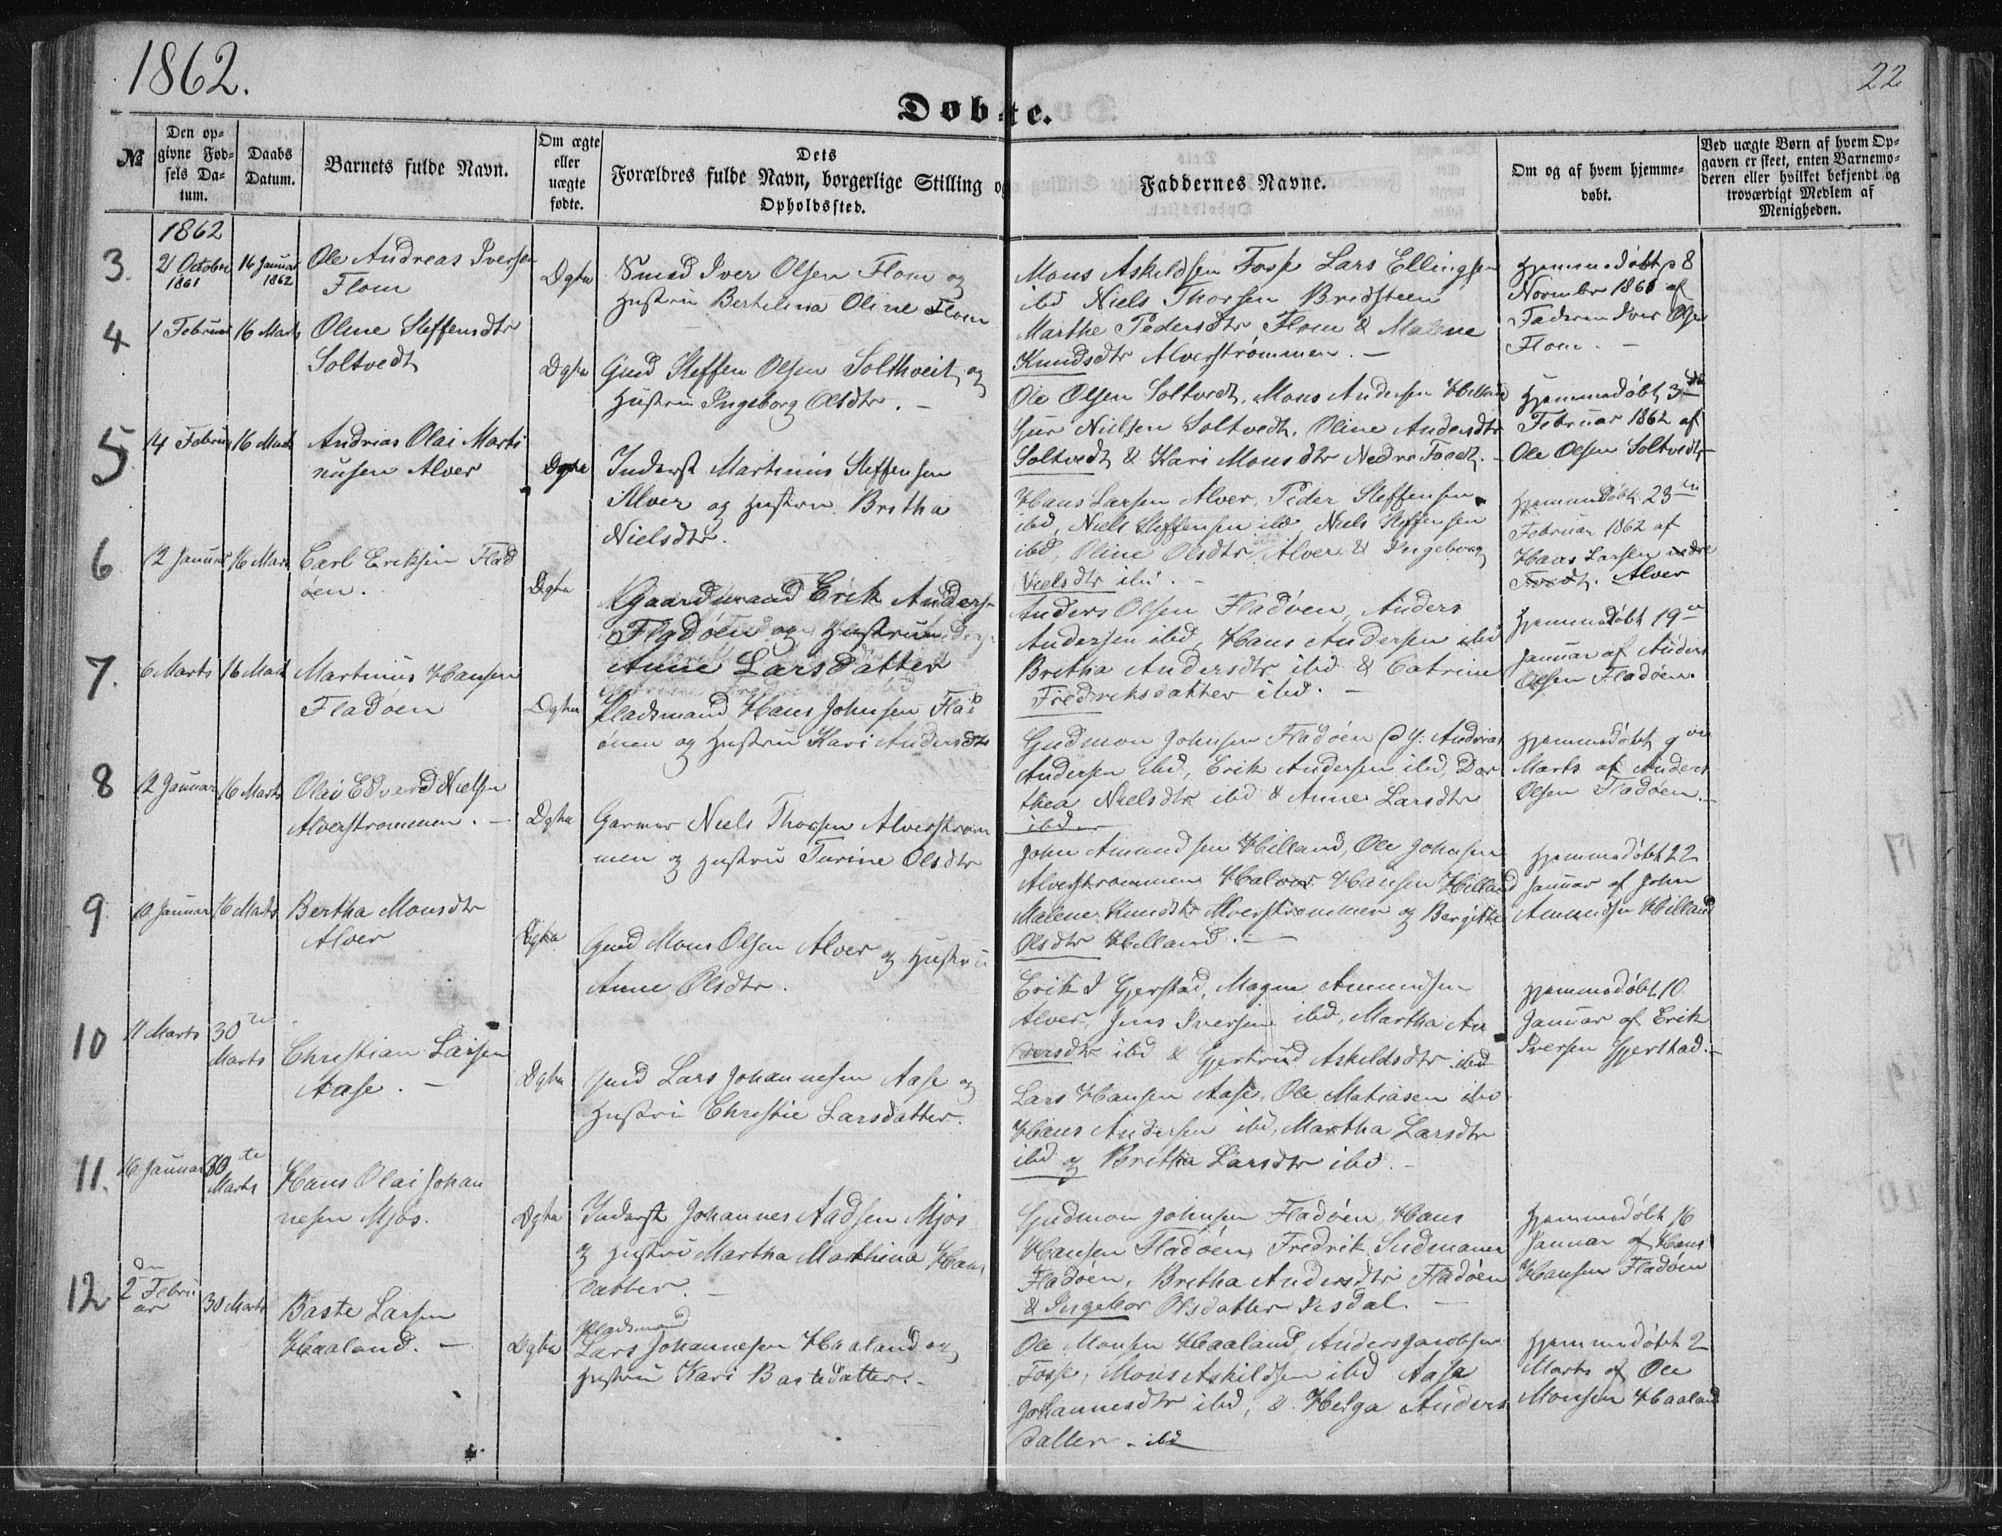 1862.
22
Døbte.
№
Den op-
givne Fød-
sels Da-
tum.
Daabs
Datum.
Barnets fulde Navn.
Om ægte
eller
uægte
fødte.
Dets
Forældres fulde Navn, borgerlige Stilling og
Opholdssted.
Faddernes Navne.
Om og af hvem hjemme-
døbt.
Ved uægte Børn af hvem Op-
gaven er skeet, enten Barnemo-
deren eller hvilket bekjendt og
troværdigt Medlem af
Menigheden.
1862
3.
21 Octobr
1861
14 Januar
1862
Ole Andreas Iversen
Flom
Ægte
Smed Iver Olsen Flom og
Hustru Bertelina Oline Flom
Mons Askeldsen Fosse Lars Ellingsen
ibd Niels Thorsen Bridsteen
Marthe Pedersdtr Flom & Malene
Knudsdtr Alverstrømmen. —
Hjemmedøbt 8
Novmbr 1861 af
Faderen Iver Olsen
Flom. —
4
1 Februar
16 Marts
Oline Steffensdtr
Soltvedt
Ægte
Gmd Steffen Olsen Solthveit og
Hustru Ingeborg Olsdtr. —
Ole Olsen Soltvedt, Mons Andersen Hilland
Gur Nielsen Soltvedt, Oline Andersdtr
Soltvedt & Kari Monsdtr Nedre Tvedt. —
Hjemmedøbt 3die
Februar 1862 af
Ole Olsen Soltvedt —
5.
14 Februar
16 Marts
Andreas Olai Marti
nusen Alver
Ægte
Inderst Martinus Steffensen
Alver og Hustru Britha
Nielsdtr.
Hans Larsen Alver, Peder Steffensen
ibd, Niels Steffensen ibd, Niels Steffensen
ibd, Oline Olsdtr Alver & Ingeborg
Nielsdtr ibd. —
Hjemmedøbt 23de
Februar 1862 af
Hans Larsen nedre
Tvedt. Alver
6
12 Januar
16 Marts
Carl Eriksen Flad
øen.
Ægte
Gaardmand Erik Anders-
Fladøen og Hustru
Anne Larsdatter
Anders Olsen Fladøen, Anders
Andersen ibd, Hans Andersen ibd
Britha Andersdtr ibd & Catrine
Fredriksdatter ibd. —
Hjemmedøbt 19de
Januar af Anders
Olsen Fladøen.
7.
6 Marts
16 Marts
Martinus Hansen
Fladøen
Ægte
Pladsmand Hans Johnsen Flad
øen og Hustru Kari Andersdtr
Gudmon Johnsen Fladøen Andreas
Andersen ibd, Erik Andersen ibd, Dor
thea Nielsdtr ibd & Anne Larsdtr
ibd. —
Hjemmedøbt 9de
Marts af Anders
Olsen Fladøen. —
8
12 Januar
16 Marts
Olai Edvard Nielsen
Alverstrømmen. —
Ægte
Garver Niels Thorsen Alverstrøm
men og Hustru Turine Olsdtr
John Amundsen Hilland, Ole Johnsen
Alverstrømmen Halvor Hansen Hilland
Malene Knudsdtr Alverstrømmen og Bergitte
Olsdtr Hilland. —
Hjemmedøbt 22
Januar af John
Amundsen Hilland
9
10 Januar
16 Marts
Bertha Monsdtr
Alver
Ægte
Gmd Mons Olsen Alver og Hustru
Anne Olsdtr.
Erik I Gjerstad, Magne Amundsen
Alver, Jens Iversen ibd, Martha An
dersdtr ibd & Gjertrud Askeldsdtr ibd
Hjemmedøbt 10
Januar af Erik
Iversen Gjerstad. —
10
11 Marts
30te
Marts
Christian Larsen
Aase. —
Ægte
Gmd Lars Johannesen Aase og
Hustru Christie Larsdatter.
Lars Hansen Aase, Ole Matiasen ibd
Hans Andersen ibd, Martha Larsdtr
ibd og Britha Larsdtr ibd. —
11.
16 Januar
30te
Marts
Hans Olai Johan
nesen Mjøs.
Ægte
Inderst Johannes Aadsen Mjøs
og Hustru Martha Marthina Hans
datter. —
Gudmon Johnsen Fladøen, Hans
Hansen Fladøen, Fredrik Sudmann
Fladøen, Britha Andersdtr Fladøen
& Ingebor Olsdatter Isdal. —
Hjemmedøbt 16
Januar af Hans
Hansen Fladøen
12
2den Febru
ar
30 Marts
Baste Larsen
Haaland. —
Ægte
Pladsmand
Lars Johannesen Haaland og
Hustru Kari Bastedatter. —
Ole Monsen Haaland, Anders Jacobsen
Fosse, Mons Askildsen ibd Aase
Johannesdtr ibd, & Helga Anders
datter. ibd
Hjemmedøbt 2
Marts af Ole
Monsen Haaland